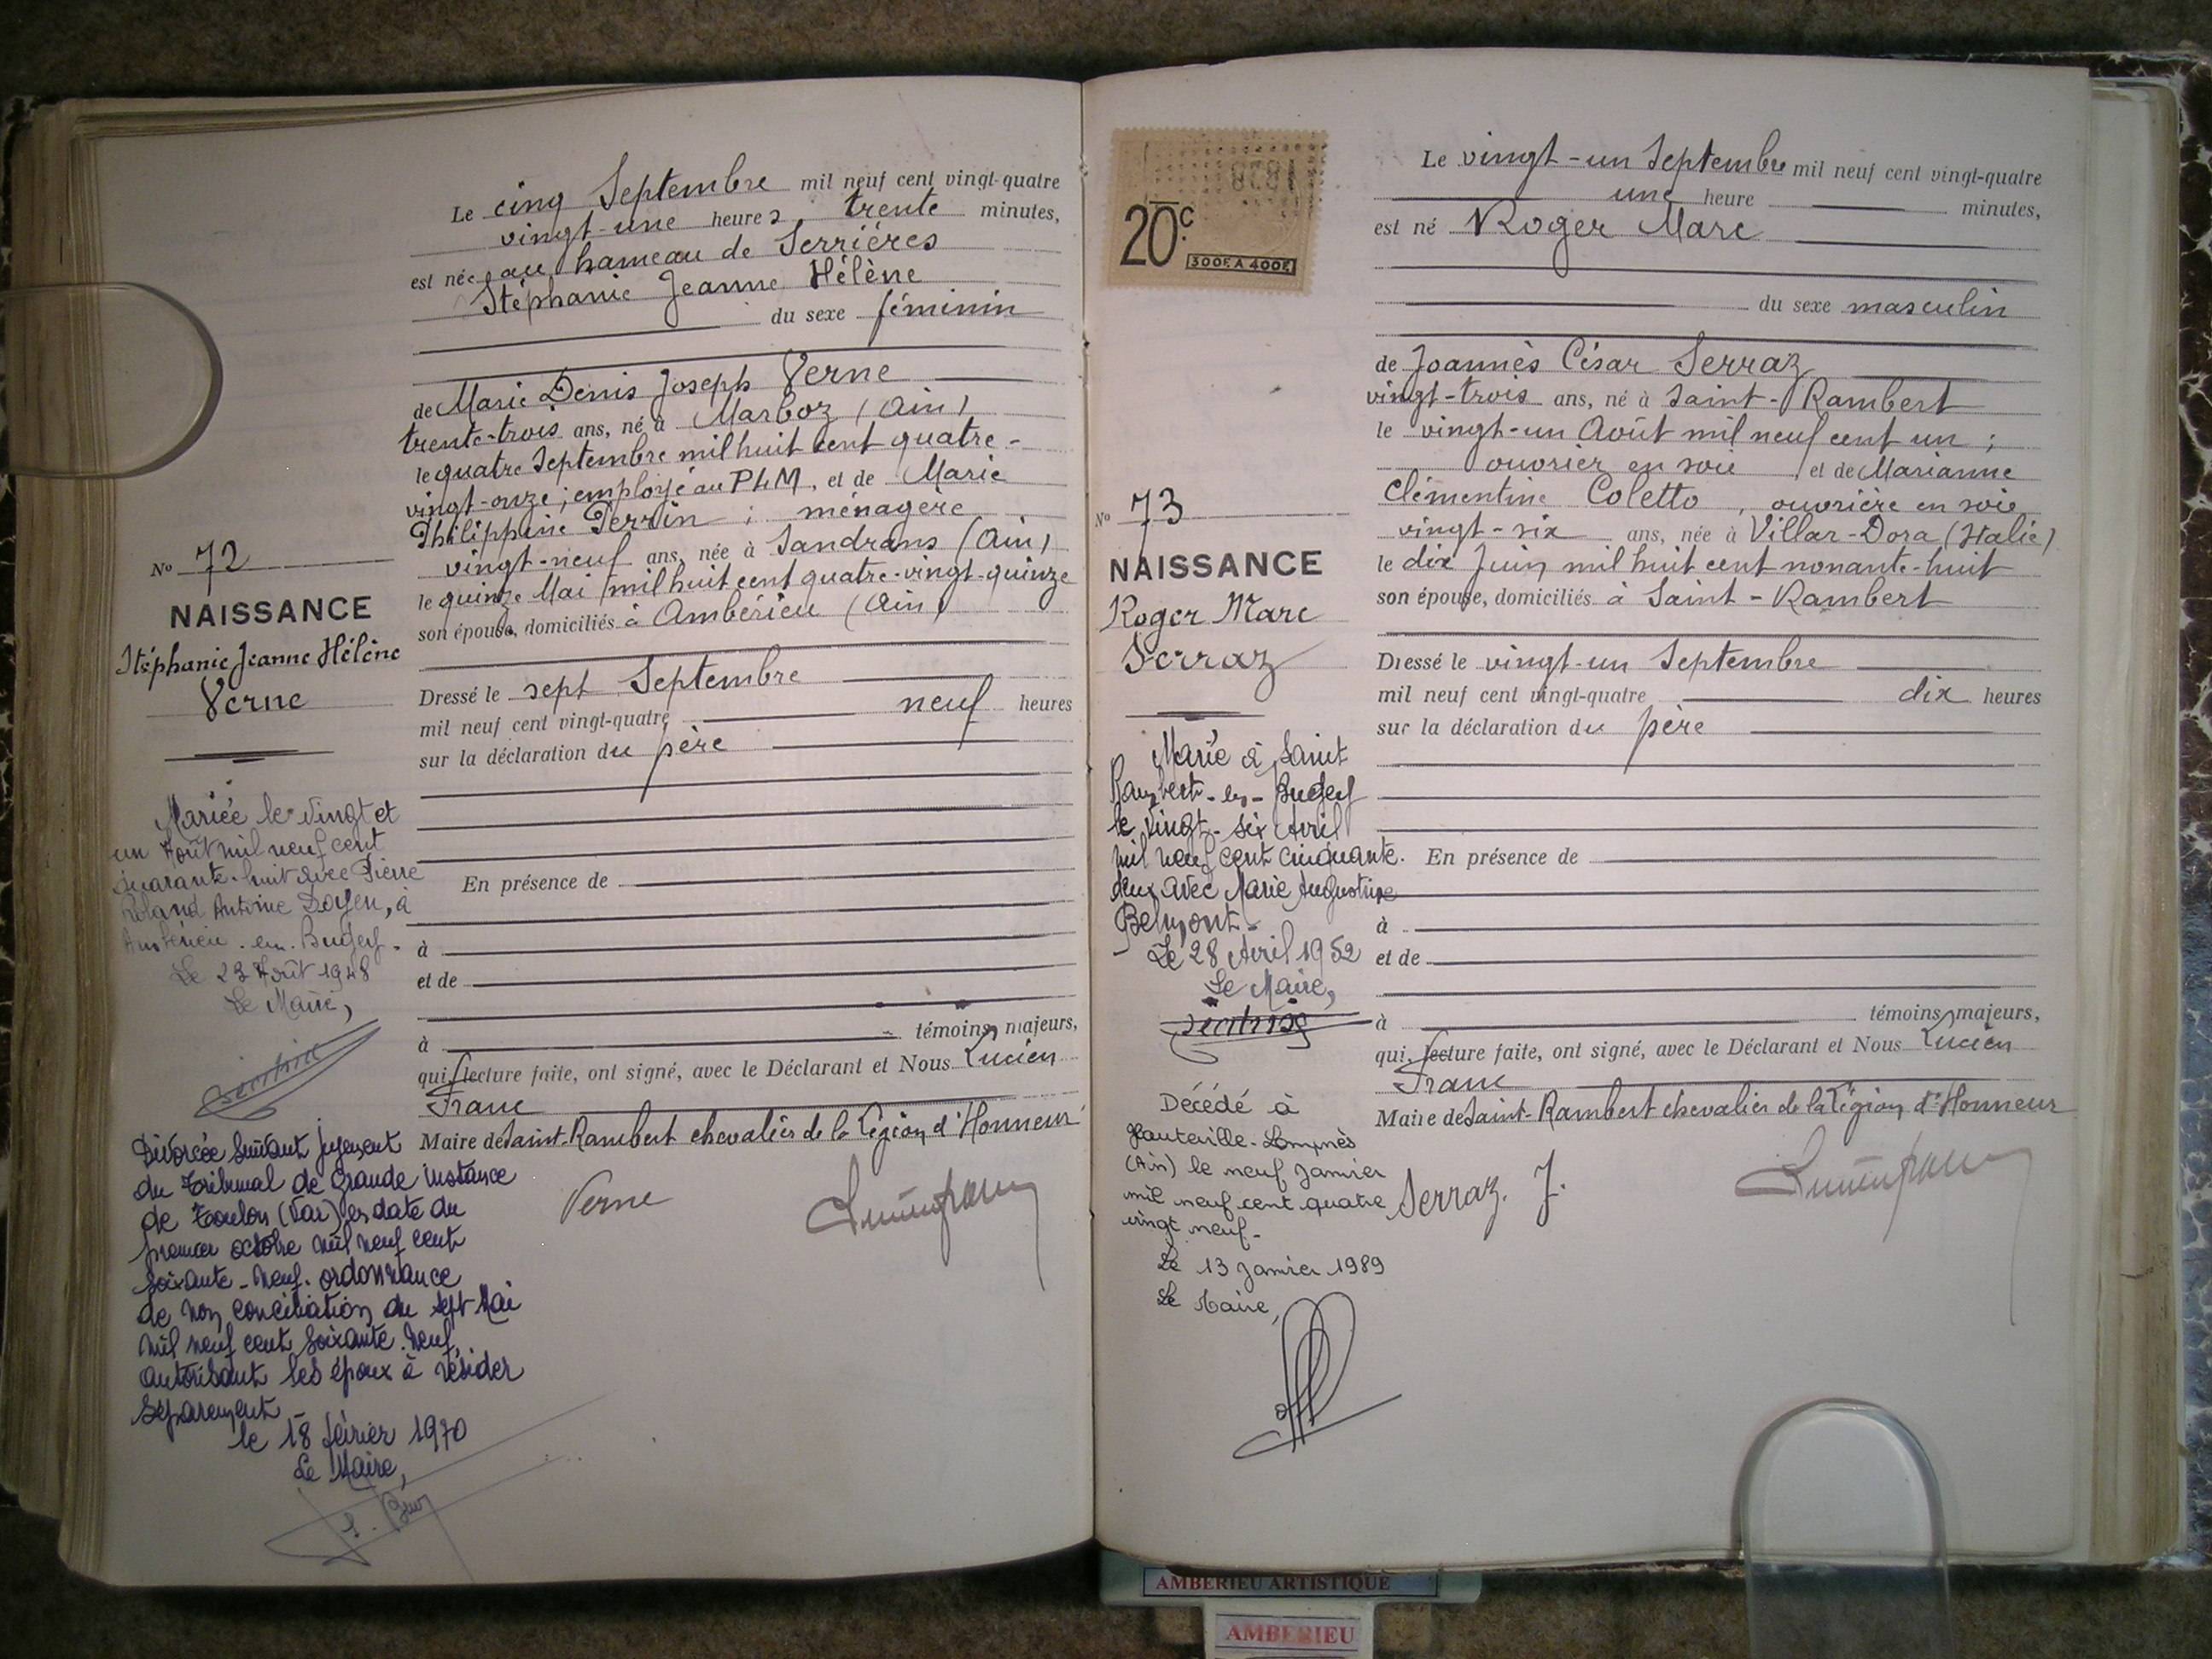 Le cinq Septembre mil neuf cent vingt-quatre
vingt-une heures, trente minutes,
est née au hameau de Serrières
Stéphanie Jeanne Hélène
du sexe féminin
de Marie Denis Joseph Verne
trente-trois ans, né à Marboz (Ain)
le quatre Septembre mil huit cent quatre-
vingt-onze ; employé au PLM, et de Marie
Philippine Perrin ; ménagère
vingt-neuf ans, née à Sandrans (Ain)
le quinze Mai mil huit cent quatre-vingt-quinze
son épouse, domiciliés à Ambérieu (Ain)
Dressé le sept Septembre
mil neuf cent vingt-quatre neuf heures
sur la déclaration du père
En présence de
à
et de
à témoins majeurs,
qui, lecture faite, ont signé, avec le Déclarant et Nous Lucien
Franc
Maire de Saint-Rambert chevalier de la Légion d'Honneur
Verne
No 72
NAISSANCE
Stéphanie Jeanne Hélène
Verne
Mariée le vingt et
un Août mil neuf cent
quarante-huit avec Pierre
Roland Antoine Doyen, à
Ambérieu-en-Bugey.
Le 23 Août 1948
Le Maire,
Divorcée suivant jugement
du Tribunal de Grande instance
de Toulon (Var) en date du
premier octobre mil neuf cent
soixante-neuf. ordonnance
de non conciliation du sept Mai
mil neuf cent soixante-neuf,
autorisant les époux à résider
séparement
le 18 février 1970
Le Maire,
20c.
300F. A 400F.
Le vingt-un Septembre mil neuf cent vingt-quatre
une heure minutes,
est né Roger Marc
du sexe masculin
de Joannès César Serraz
vingt-trois ans, né à Saint-Rambert
le vingt-un Août mil neuf cent un ;
ouvrier en soie, et de Marianne
Clémentine Coletto, ouvrière en soie
vingt-six ans, née à Villar-Dora (Italie)
le dix Juin mil huit cent nonante-huit
son épouse, domiciliés à Saint-Rambert
Dressé le vingt-un Septembre
mil neuf cent vingt-quatre dix heures
sur la déclaration du père
En présence de
à
et de
à témoins majeurs,
qui, lecture faite, ont signé, avec le Déclarant et Nous Lucien
Franc
Maire de Saint-Rambert chevalier de la Légion d'Honneur
Serraz. J.
No 73
NAISSANCE
Roger Marc
Serraz
Marié à Saint
Rambert-en-Bugey
le vingt-six Avril
mil neuf cent cinquante-
deux avec Marie Augustine
Belmont-
Le 28 Avril 1952
Le Maire,
Décédé à
Hauteville-Lompnès
(Ain) le neuf Janvier
mil neuf cent quatre
vingt neuf-
Le 13 Janvier 1989
Le Maire,
AMBERIEU ARTISTIQUE
AMBERIEU